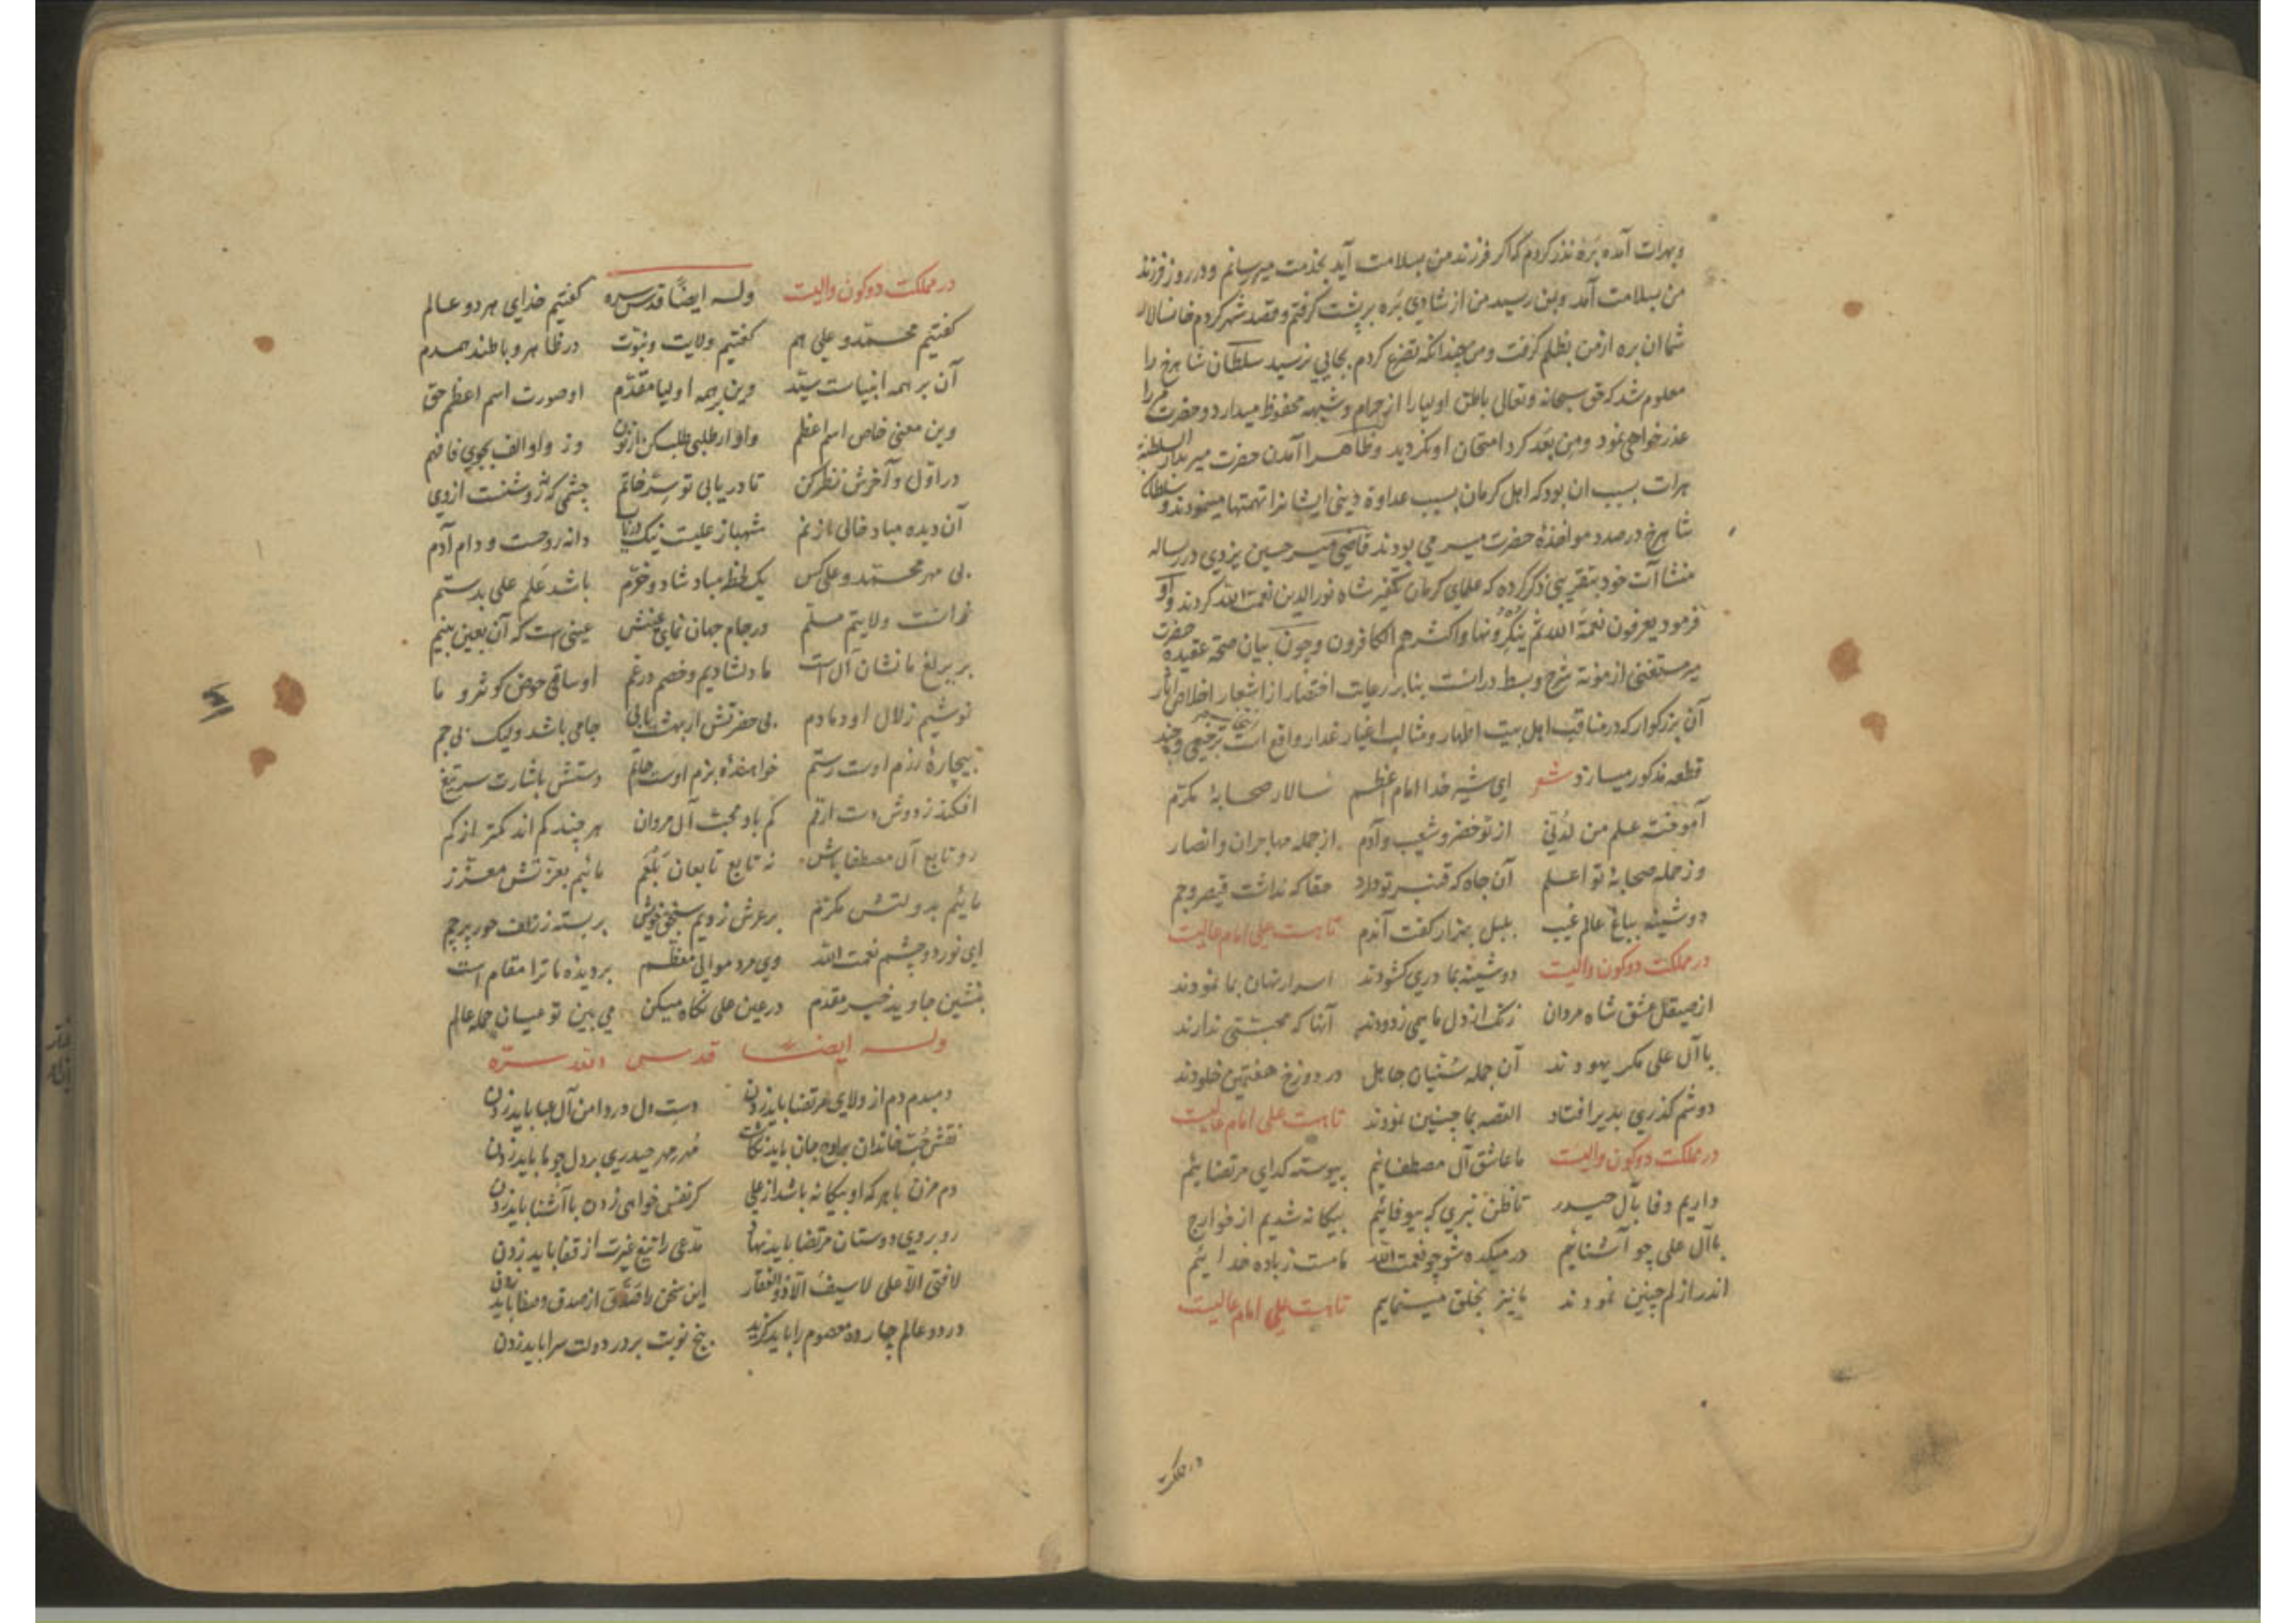 وبهرات آمده بره نذر کردم که اکر فرزند من بسلامت آید بخدمت میر رسانم و در روز فرزند
من بسلامت آمد و بمن رسید من از شادی بره بر پشت کرفتم و قصد شهر کردم خانسالار
شما ان بره از من بظلم کرفت و من چندانکه تضرع کردم بجایی نرسید سلطان شاهرخ را
معلوم شد که حق سبحانه و تعالی باطن اولیا را از حرام و شبهه محفوظ میدارد و حضرت میر را
عذر خواهی نمود و من بعد کرد امتحان او نکردید و ظاهرا آمدن حضرت میر بدار السلطنة
هرات بسبب ان بود که اهل کرمان بسبب عداوة دینی ایشانرا تهمتها مینمودند و سلطان
شاهرخ در صدد مواخذهٔ حضرت میر می بودند قاضی میر حسین یزدی در رساله
منشاآت خود بتقریبی ذکر کرده که علمای کرمان تکفیر شاه نورالدین نعمت الله کردند و او
فرمود یعرفون نعمة الله ثم ینکرونها و اکثرهم الکافرون و چون بیان صحة عقیده حضرت
میر مستغنی از مؤنة شرح و بسط دانست بنابر رعایت اختصار از اشعار اخلاص آثار
آن بزرکوار که در مناقب اهل بیت اطهار و مثالب اغیار غدار واقع است بترجیعی و چند
قطعه مذکور میسازد شعر ای شیر خدا امام اعظم سالار صحابهٔ مکرم
آموخته علم من لدنی از تو خضر و شعیب و آدم از جمله مهاجران و انصار
وز جمله صحابهٔ تو اعلم آن جاه که قنبر تو دارد حقا که نداشت قیصر و جم
دوشینه بباغ عالم غیب بلبل بهزار کفت آندم تا هست علی امام عالیست
در مملکت دو کون والیست دوشینه بما دری کشودند اسرار نهان بما نمودند
از صیقل عشق شاه مردان زنک از دل ما همی زدودند آنها که محبتی ندارند
با آل علی مکر یهودند آن جمله سنیان جاهل در دوزخ هفتمین خلودند
دوشم کذری بدیر افتاد القصه بما چنین نمودند تا هست علی امام عالیست
در مملکت دو کون والیست ما عاشق آل مصطفائیم پیوسته کدای مرتضائیم
داریم وفا بآل حیدر تا ظن نبری که بیوفائیم بیکانه شدیم از خوارج
با آل علی چو آشنائیم در میکده شو چو نعمت الله مست ز باده خدائیم
اندر ازلم چنین نمودند ما نیز بخلق مینمایم تا هست علی امام عالیست
در مملکت
در مملکت دو کون والیست وله ایضا قدس سره کفتیم خدای هر دو عالم
کفتیم محمد و علی هم کفتیم ولایت و نبوت در ظاهر و باطند همدم
آن بر همه انبیاست سید وین بر همه اولیا مقدم او صورت اسم اعظم حق
وین معنی خاص اسم اعظم واو ار طلبی طلب کن از نون وز واو الف بجوی فافهم
در اول و آخرش نظر کن تا دریابی تو سر خاتم چشمی که نه روشنست از وی
آن دیده مباد خالی از نم شهباز علیست نیک دریاب دانه روحست و دام آدم
بی مهر محمد و علی کس یک لحظه مباد شاد و خرم باشد علم علی بدستم
زانست ولایتم مسلم در جام جهان نمای عینش عینی است که آن بعین بینم
بر یرلغ ما نشان آل است ما دلشادیم و خصم در غم او ساقی حوض کوثر و ما
نوشیم زلال او دمادم بی حضرتش ار بهشت یابی جامی باشد ولیک بی جم
بیچارهٔ رزم اوست رستم خواهنده بزم اوست حاتم دستش باشارت سر تیغ
افکند ز دوش دست ارقم کم باد محب آل مروان هر چند کم اند کمتر از کم
رو تابع آل مصطفا باش نه تابع تابعان بلعم مائیم بعزتش معزز
مائیم بدولتش مکرم بر عرش زدیم سنجق خویش بر بسته ز زلف حور پرچم
ای نور دو چشم نعمت الله وی مرد موالی معظم بر دیدهٔ ما ترا مقام است
بنشین جاوید خیر مقدم در عین علی نکاه میکن می بین تو عیان جمله عالم
وله ایضا قدس الله سره
دمبدم دم از ولای مرتضا باید زدن دست دل در دامن آل عبا باید زدن
نقش حب خاندان بر لوح جان باید نکاشت مهر مهر حیدری بر دل چو ما باید زدن
دم مزن با هر که او بیکانه باشد از علی کر نفس خواهی زدن با آشنا باید زدن
رو بروی دوستان مرتضا باید نهاد مدعی را تیغ غیرت از قفا باید زدن
لا فتی الا علی لا سیف الا ذوالفقار این سخن را از صدق و صفا باید زدن
در دو عالم چارده معصوم را باید کزید پنج نوبت بر در دولت سرا باید زدن